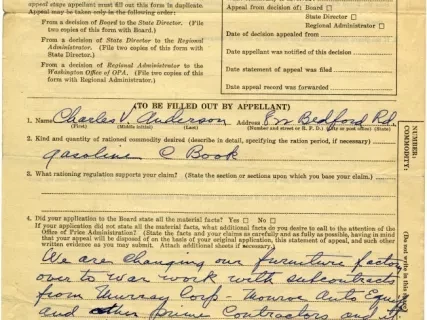 appeal stage appellant must fill out this form in duplicate.
Appeal may be taken only in the following order:
From a decision of Board to the State Director. (File
two copies of this form with Board.)
From a decision of State Director to the Regional
Administrator. (File two copies of this form with
State Director.)
From a decision of Regional Administrator to the
Washington Office of OPA. (File two copies of this
form with Regional Administrator.)
Appeal from decision of) Board ☐
State Director ☐
Regional Administrator ☐
Date of decision appealed from
Date appellant was notified of this decision
Date statement of appeal was filed
Date appeal record was forwarded
(TO BE FILLED OUT BY APPELLANT)
1. Name Charles V. Anderson Address Bedford Rd.
(First) (Middle initial) (Last) (Number and street or R. F. D.) (City or post office) (State)
2. Kind and quantity of rationed commodity desired (describe in detail, specifying the ration period, if necessary)
gasoline C Book
3. What rationing regulation supports your claim? (State the section or sections upon which you base your claim.)
4. Did your application to the Board state all the material facts? Yes ☐ No ☐
If your application did not state all the material facts, what additional facts do you desire to call to the attention of the
Office of Price Administration? (State the facts and your claims as carefully and as fully as possible, having in mind
that your appeal will be disposed of on the basis of your original application, this statement of appeal, and such other
written evidence as you may submit. Attach additional sheets if necessary)
We are changing our furniture factory
over to war work with subcontracts
from Murray Corp - Monroe Auto Equip
and other Prime Contractors and it
NUMBER:
COMMODITY:
(Do not write in this